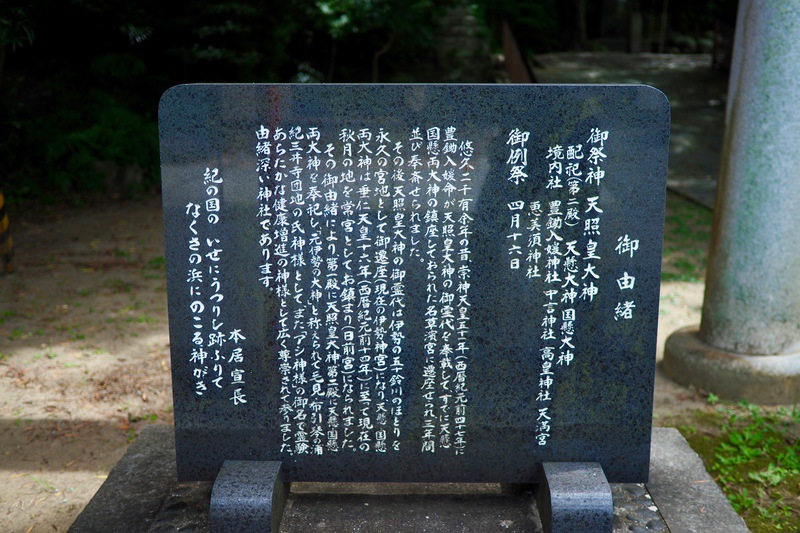 御由緒
御祭神 天照皇大神
配祀(第二殿) 天懸大神 国懸大神
境内社 豊鋤入媛神社 中言神社 高皇神社 天満宮
恵美須神社
御例祭 四月十六日
悠久二千有余年の昔、崇神天皇五十一年(西暦紀元前四十七年)に
豊鋤入媛命が天照皇大神の御霊代を奉戴してすでに天懸
国懸両大神の鎮座しておられた名草濱宮に遷座せられ三年間
並び奉斎せられました。
その後天照皇大神の御霊代は伊勢の五十鈴川のほとりを
永久の宮地として御遷座(現在の伊勢神宮)になり、天懸国懸
両大神は垂仁天皇十六年(西暦紀元前十四年)に至て現在の
秋月の地を常宮としてお鎮まり(日前宮)になられました。
その御由緒により第一殿に天照皇大神第二殿に天懸国懸
両大神を奉祀し、元伊勢の大神と称えられて毛見、布引、琴の浦
紀三井寺団地の氏神様として、また、アシ神様の御名で霊験
あらたかな健康増進の神様として広く尊崇されて参りました。
由緒深い神社であります。
本居宣長
紀の国の いせにうつりし跡ふりて
なくさの浜にのこる神がき